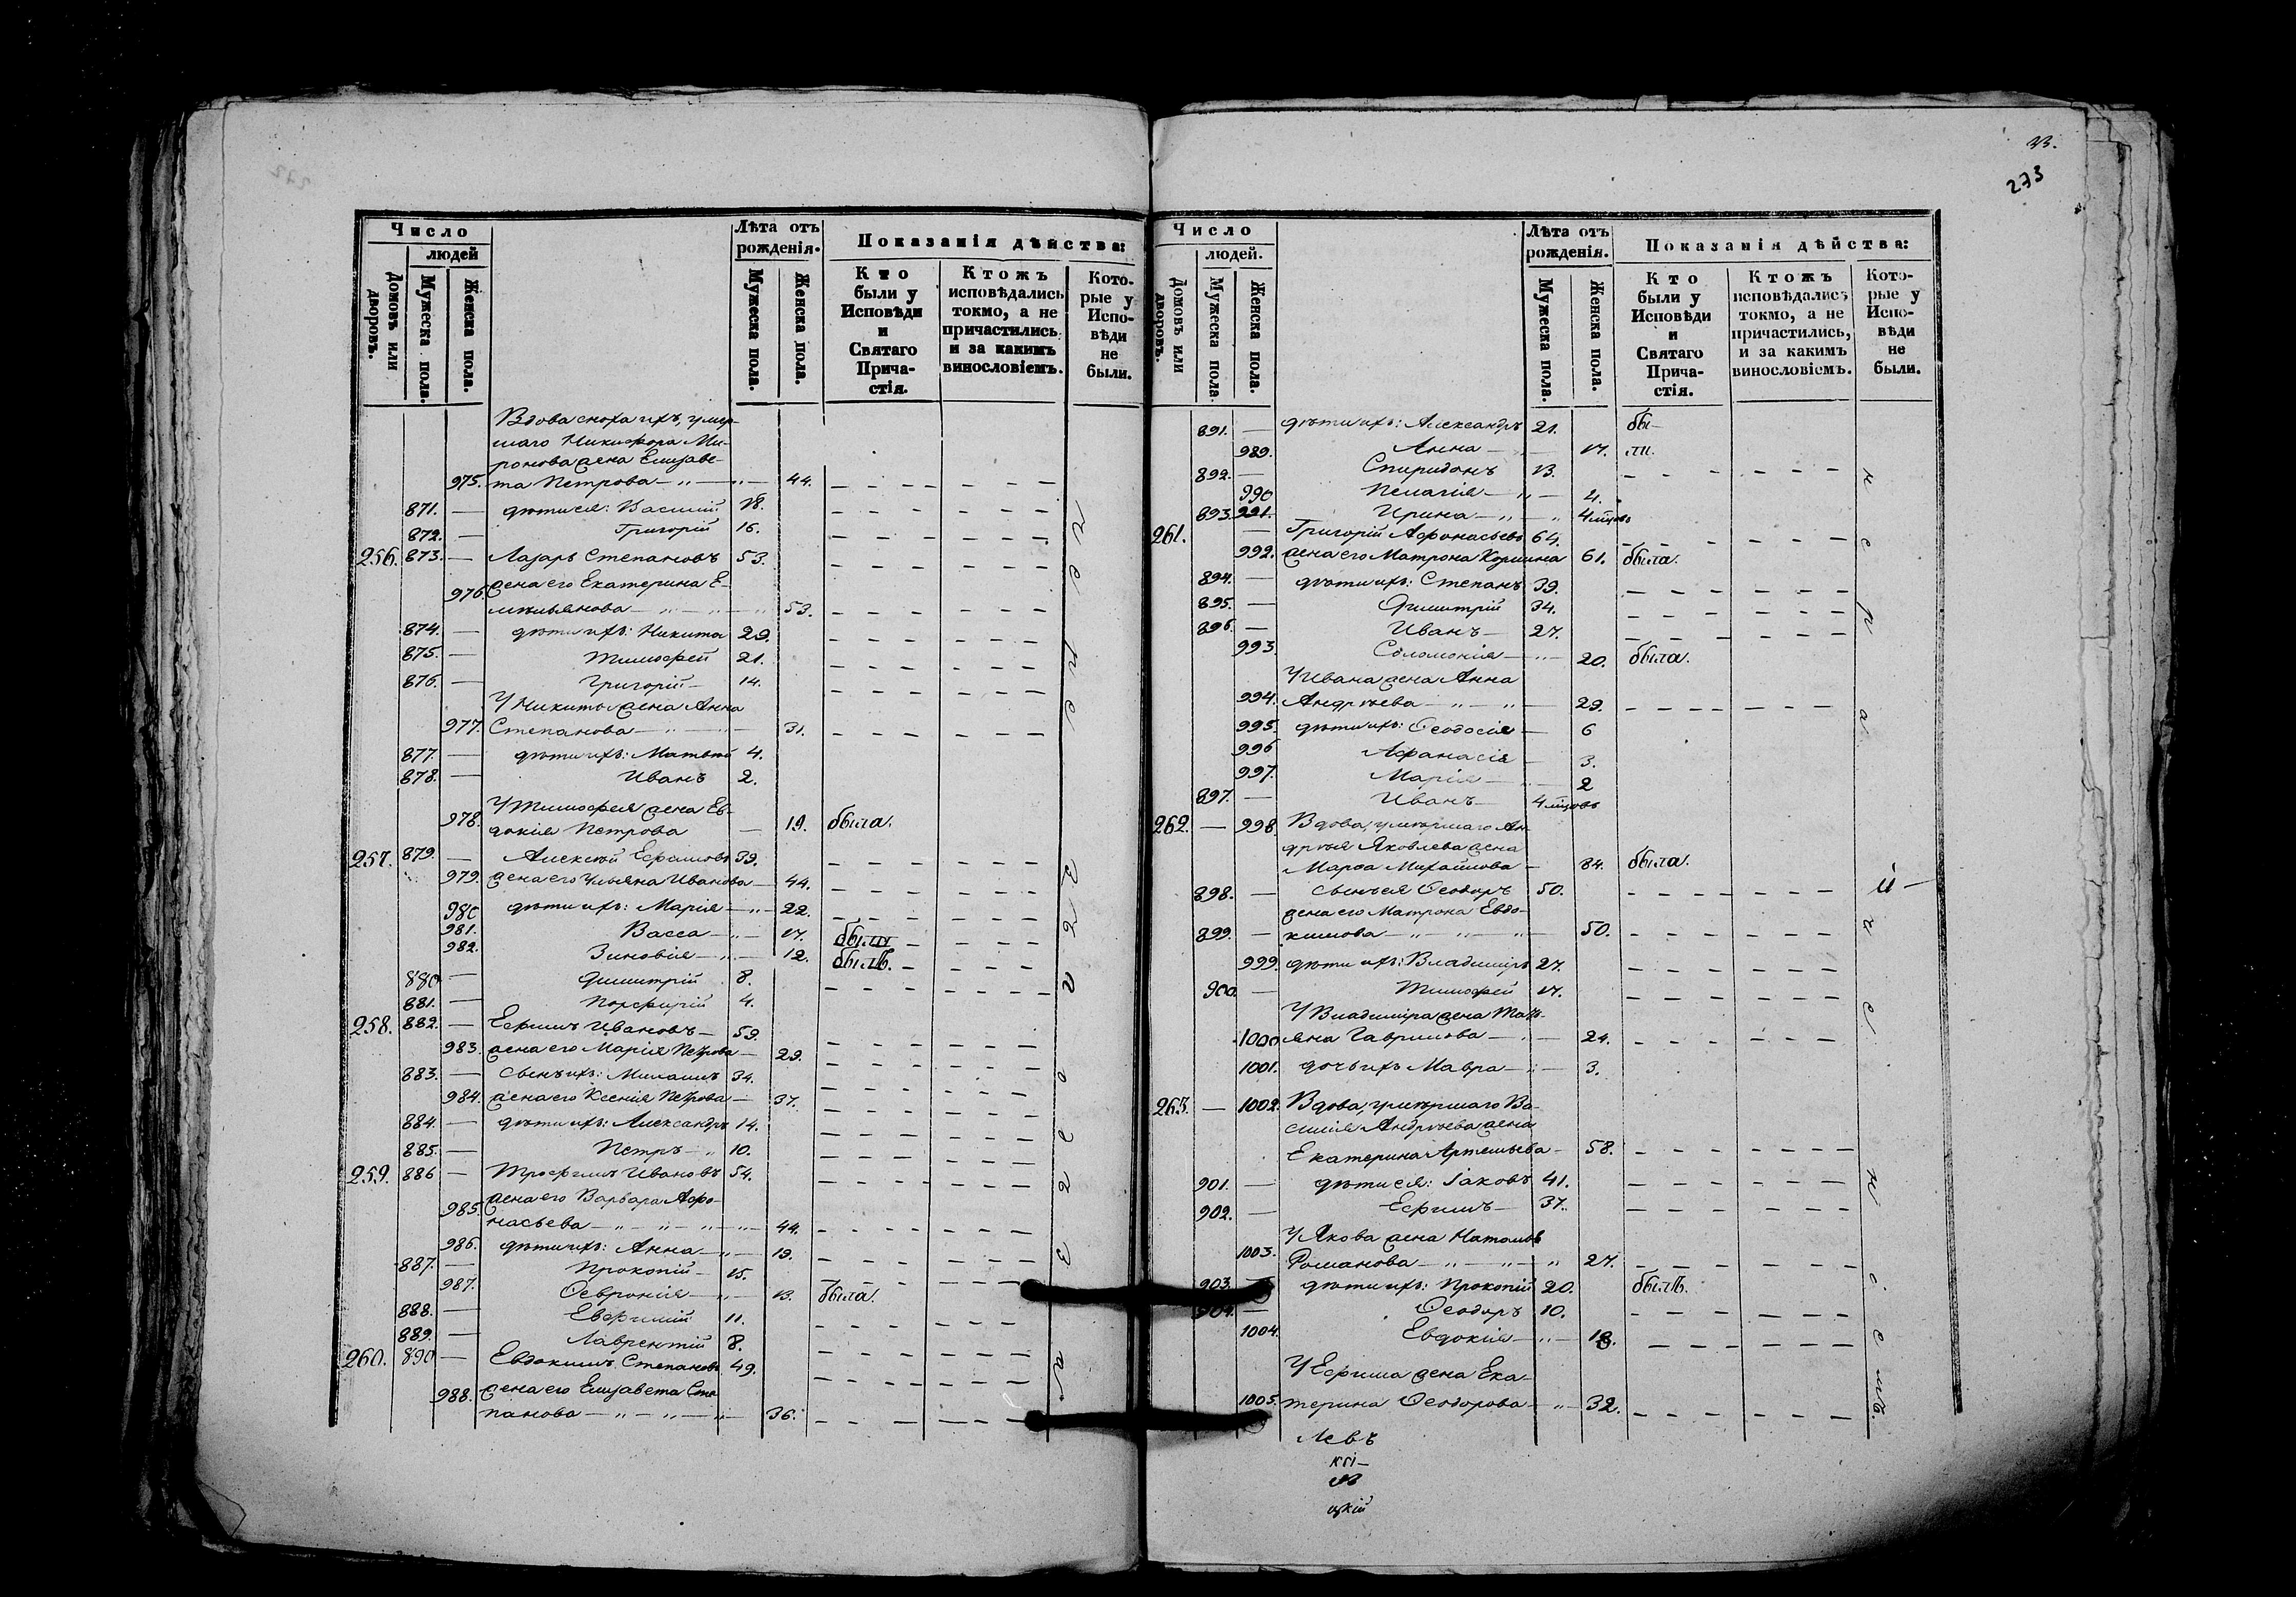 33.
273
Число
людей
Домовъ или дворовъ.
Мужеска пола.
Женска пола.
Лѣта отъ рожденія.
Мужеска пола.
Женска пола.
Показанія дѣйства:
Кто были у Исповѣди и Святаго Прича-стія.
Ктожъ исповѣдались токмо, а не причастились и за какимъ винословіемъ.
Кото-рые у Испо-вѣди не были.
Вдова сноха ихъ, умер-
шаго Никифора Ми-
ронова жена Елизаве-
975. та Петрова — „ — „ — 44.
871. — дѣти ея: Василій 18.
872. — Григорій 16.
256. 873. — Лазарь Степановъ 53.
976. жена его Екатерина Е-
мельянова — „ — „ — 53.
874. — дѣти ихъ: Никита 29.
875. — Тимофей 21.
876. — Григорій — 14.
У Никиты жена Анна
977. Степанова — „ — „ — 31.
877. — дѣти ихъ: Матвей 4.
878. — Иванъ 2.
У Тимофея жена Ев-
978. докія Петрова — 19. была.
257. 879. — Алексѣй Ефимовъ 39.
979. жена его Ульяна Иванова — 44.
980 дѣти ихъ: Марія — „ — 22.
981. Васса — „ — 17. были
982. Зиновія — „ — 12. былъ.
880 — Димитрій 8.
881. — Порфирій 4.
258. 882. — Ефимъ Ивановъ — 59.
983. жена его Марія Петрова — 29.
883. — сынъ ихъ: Михаилъ 34.
984. жена его Ксенія Петрова — 37.
884. — дѣти ихъ: Александръ 14.
885. — Петръ — „ 10.
259. 886 — Трофимъ Ивановъ 54.
985. жена его Варвара Афо-
насьева — „ — „ — „ — 44.
986. дѣти ихъ: Анна — „ — 19.
887. — Прокопій — 15.
987. Февронія — „ — 13. была.
888. — Евфимій 11.
889. — Лаврентій 8.
260. 890 — Евдокимъ Степановъ 49.
988. жена его Елизавета Сте-
панова — „ — „ — „ — 36.
Число
людей.
Домовъ или дворовъ.
Мужеска пола.
Женска пола.
Лѣта отъ рожденія.
Мужеска пола.
Женска пола.
Показанія дѣйства:
Кто были у Исповѣди и Святаго Прича-стія.
Ктожъ исповѣдались токмо, а не причастились, и за какимъ винословіемъ.
Кото-рые у Испо-вѣди не были.
891. — дѣти ихъ: Александръ 21. бы-
989. Анна — „ — 17. ли.
892. — Спиридонъ 13.
990 Пелагія — „ — 4.
893. 991. Ирина — „ — „ 4 мѣсяцовъ
261. — Григорій Афонасьевъ 64.
992. жена его Матрона Кузмина 61. была.
894. — дѣти ихъ: Степанъ 39.
895. — Димитрій 34.
896. — Иванъ — 27.
993. Соломонія — „ — 20. была.
У Ивана жена Анна
994. Андреева — „ — „ — 29.
995. дѣти ихъ: Феодосія — 6
996 Афанасія — 3.
997. Марія — „ — 2
897. — Иванъ — 4 мѣсяцовъ
262. — 998. Вдова, умершаго Ан-
дрея Яковлева жена
Марфа Михайлова — 84. была.
898. — сынъ ея Феодоръ 50.
жена его Матрона Евдо-
899. — кимова — „ — „ — „ — 50.
999. дѣти ихъ: Владиміръ 27.
900. — Тимофей 17.
У Владиміра жена Тать-
1000 яна Гаврилова — „ — 24.
1001. дочь ихъ Мавра — „ — 3.
263. — 1002. Вдова, умершаго Ва-
силія Андреева жена
Екатерина Артемьева — 58.
901. — дѣти ея: Іаковъ 41.
902. — Ефимъ — 37.
У Якова жена Наталья
1003. Романова — „ — „ — „ 27.
903. — дѣти ихъ: Прокопій 20. былъ.
904. — Феодоръ 10.
1004. Евдокія — „ — 18.
У Ефима жена Ека-
1005. терина Феодорова — „ — 32.
Левъ